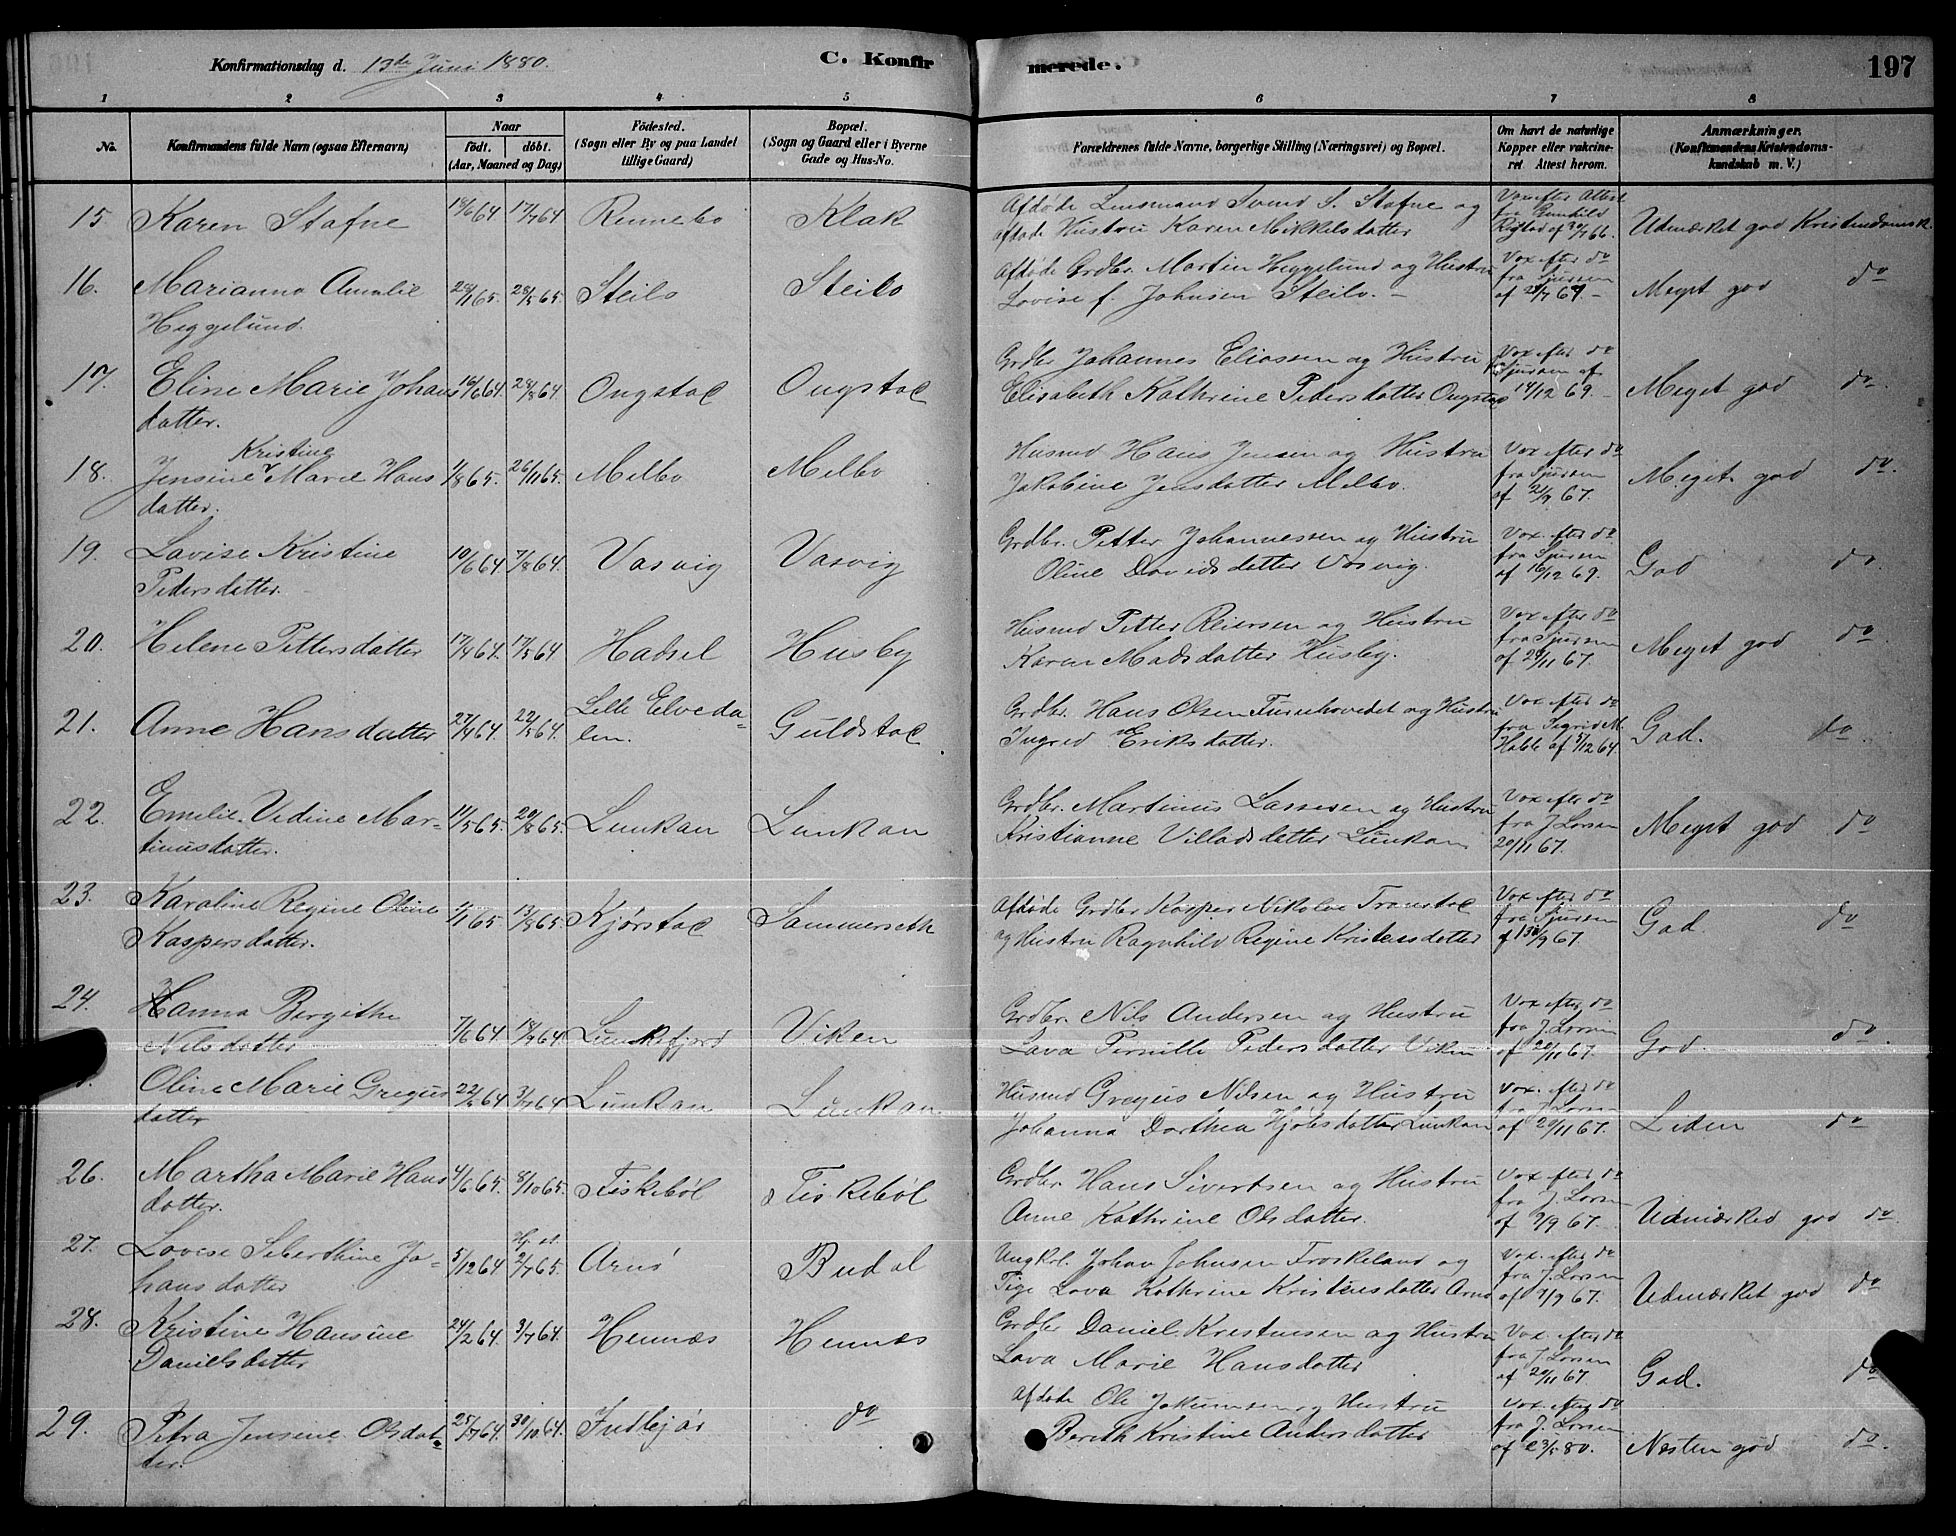 Konfirmationsdag d. 13de Juni 1880.
C. Konfirmerede.
197
1 2 3 4 5 6 7 8
No.
Konfirmandens fulde Navn (ogsaa Efternavn)
Naar
født. døbt.
(Aar, Maaned og Dag)
Fødested.
(Sogn eller By og paa Landet
tillige Gaard)
Bopæl.
(Sogn og Gaard eller i Byerne
Gade og Hus-No.
Forældrenes fulde Navne, borgerlige Stilling (Næringsvei) og Bopæl.
Om havt de naturlige
Kopper eller vakcine-
ret Attest herom.
Anmærkninger.
(Konfirmandens Kristendoms-
kundskab m. V.)
15. Karen Stafne 18/6 64 17/7 64 Rennebo Klak
Afdøde Lensmand Svend S. Stafne og
afdøde Hustru Karen Mikkelsdatter
Vax efter Attest
fra Gunhild
af 30/7 66.
Udmærket god Kristendomsk.
16. Marianna Amalie
Heggelund.
28/1 65. 28/5 65. Steilo Steilo
Afdøde Grdbr. Martin Heggelund og Hustru
Lovise f. Johnsen Steilo.
Vax efter do
fra Sjursen
Meget god do
17. Eline Marie Johans
datter.
16/6 64 28/8 64 Ongstad Ongstad
Grdbr Johannes Eliassen og Hustru
Elisabeth Kathrine Pedersdatter Ongstad
Vax efter do
Sjursen af
14/12 69.
Meget god do.
18. Jensine Kristine Marie Hans
datter.
1/8 65. 26/11 65. Melbo Melbo
Husmd Hans Jensen og Hustru
Jakobine Jensdatter Melbo.
Vax efter do
fra Sjursen
af 21/9 67.
Meget god do.
19. Lovise Kristine
Pedersdatter.
10/6 64 7/8 64. Vasvig Vasvig
Grdbr. Petter Johannessen og Hustru
Oline Davidsdatter Vasvig.
Vax. efter do
fra Sjursen
af 16/12 69.
God do.
20. Helene Pettersdatter 17/4 64. 17/5 64 Hadsel Husby
Husmd Petter Reiersen og Hustru
Karen Madsdatter Husby.
Vax efter do
fra Sjursen
af 29/11 67.
Meget god do
21. Anne Hansdatter 27/4 64 22/5 64. Lille Elveda-
len.
Guldstad
Grdbr. Hans Olsen Furuhovedet og Hustru
Ingrid Eriksdatter.
Vax efter do
fra Sigrid M.
af 5/12 64.
God. do
22. Emilie Vedine Mar-
tinusdatter.
11/5 65. 20/8 65. Lunkan Lunkan
Grdbr. Martinus Lassesen og Hustru
Kristianne Villadsdatter Lunkan
Vax efter do
fra J. Larsen
20/11 67.
Meget god do
23. Karoline Regine Oline
Kaspersdatter.
1/1 65 13/8 65 Kjørstad Sammerseth
Afdøde Grdbr Kasper Nikolai Transtad
og Hustru Ragnhild Regine Kristensdatter
Vax efter do
fra Sjursen
God. do
24. Hanna Bergithe
Nilsdatter
7/6 64 18/9 64 Lunkefjord Viken
Grdbr. Nils Andersen og Hustru
Lava Pernille Pedersdatter Viken
Vax efter do
fra J. Larsen
af 20/11 67.
God. do.
Oline Marie Gregus
datter
22/4 64 3/7 64 Lunkan Lunkan
Husmd Gregus Nilsen og Hustru
Johanna Dorthea Hjelsdatter Lunkan
Vax. efter do
fra J. Larsen
af 20/11 67.
Liden do
26. Martha Marie Hans
datter.
4/6 65. 8/10 65. Fiskebøl Fiskebøl
Grdbr. Hans Sivertsen og Hustru
Anne Kathrine Olsdatter.
Vax efter do
fra J. Larsen
af 7/9 67.
Udmærked god do.
27. Lovise Seberthine Jo-
hansdatter
5/12 64 2/7 65. Arnø Budal
Ungkrl. Johan Johnsen Froskeland og
Pige Lava Kathrine Kristensdatter Arnø
Vax. efter do
fra J. Larsen
af 7/9 67.
Udmærket god do
28. Kristine Hansine
Danielsdatter
24/2 64. 3/7 64. Hennæs Hennæs
Grdbr Daniel Kristensen og Hustru
Lava Marie Hansdatter
Vax. efter do
fra J. Larsen
af 20/11 67.
God. do
29. Petra Jensine Olsdat-
ter.
25/7 64. 30/10 64. Indlejør do
Afdøde Ole Jakumsen og Hustru
Bereth Kristine Andersdatter
Vax. efter do
fra J. Larsen
Nesten god do.